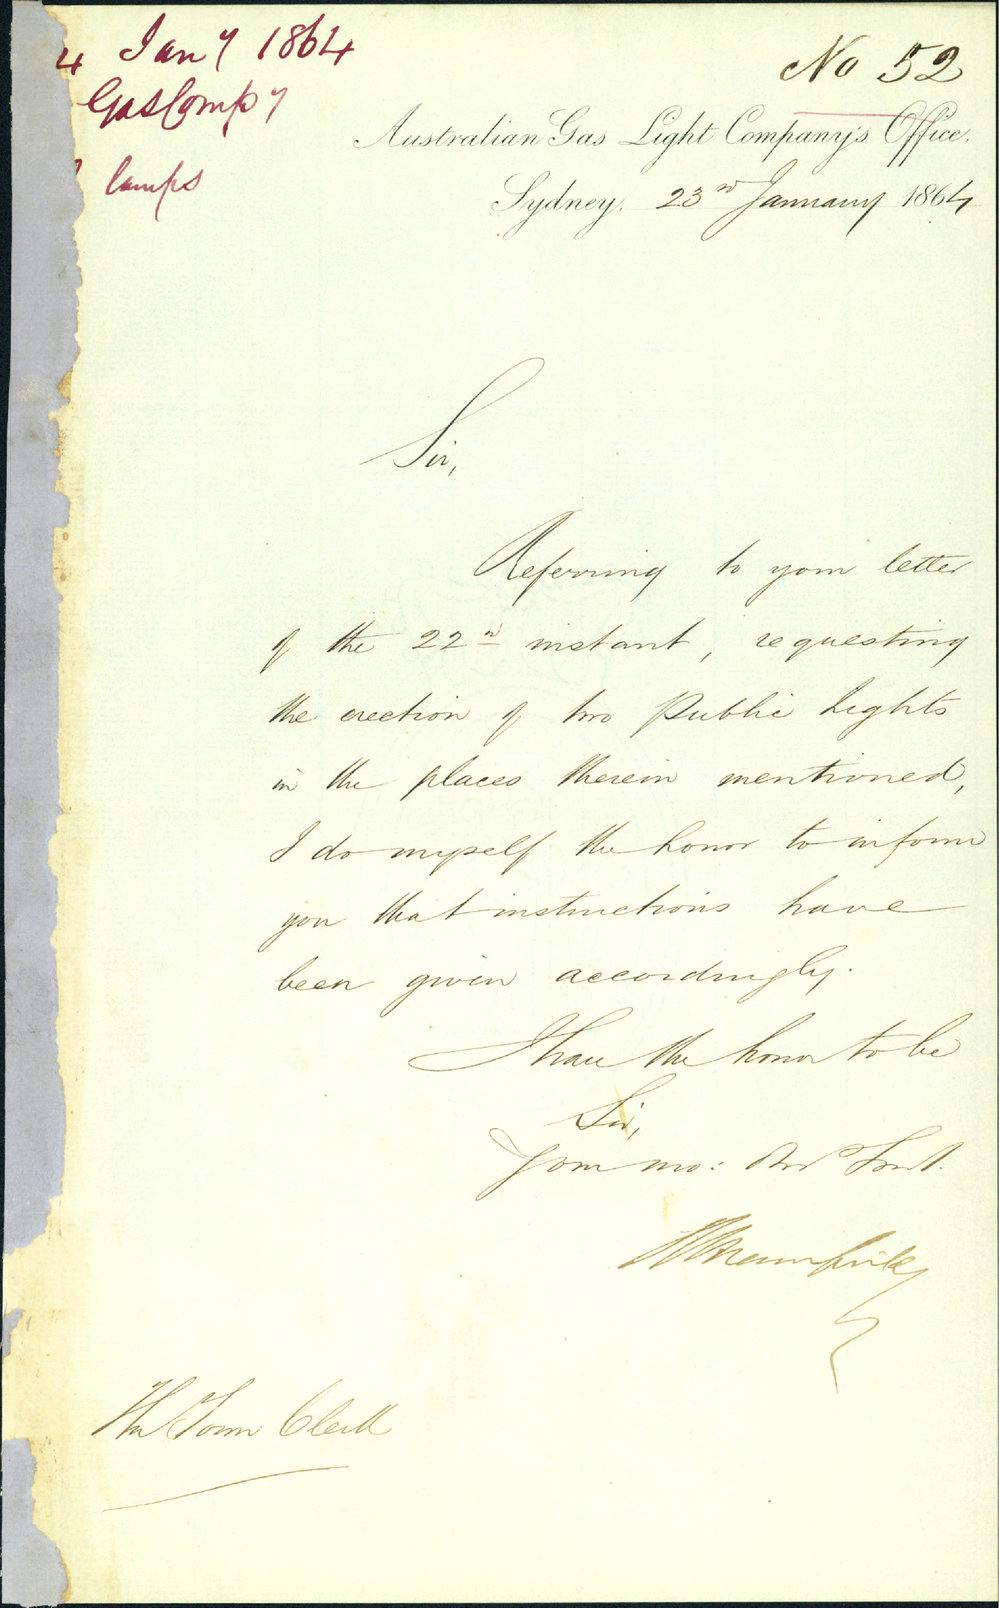 4 Jany 1864
GasCompy
lamps
No 52
Australian Gas Light Company's Office.
Sydney. 23rd January 1864
Sir,
Referring to your letter
of the 22nd instant, requesting
the erection of two Public Lights
in the places therein mentioned,
I do myself the honor to inform
you that instructions have
been given accordingly.
I have the honor to be
Sir,
Your mo: Obt Servt.
The Town Clerk